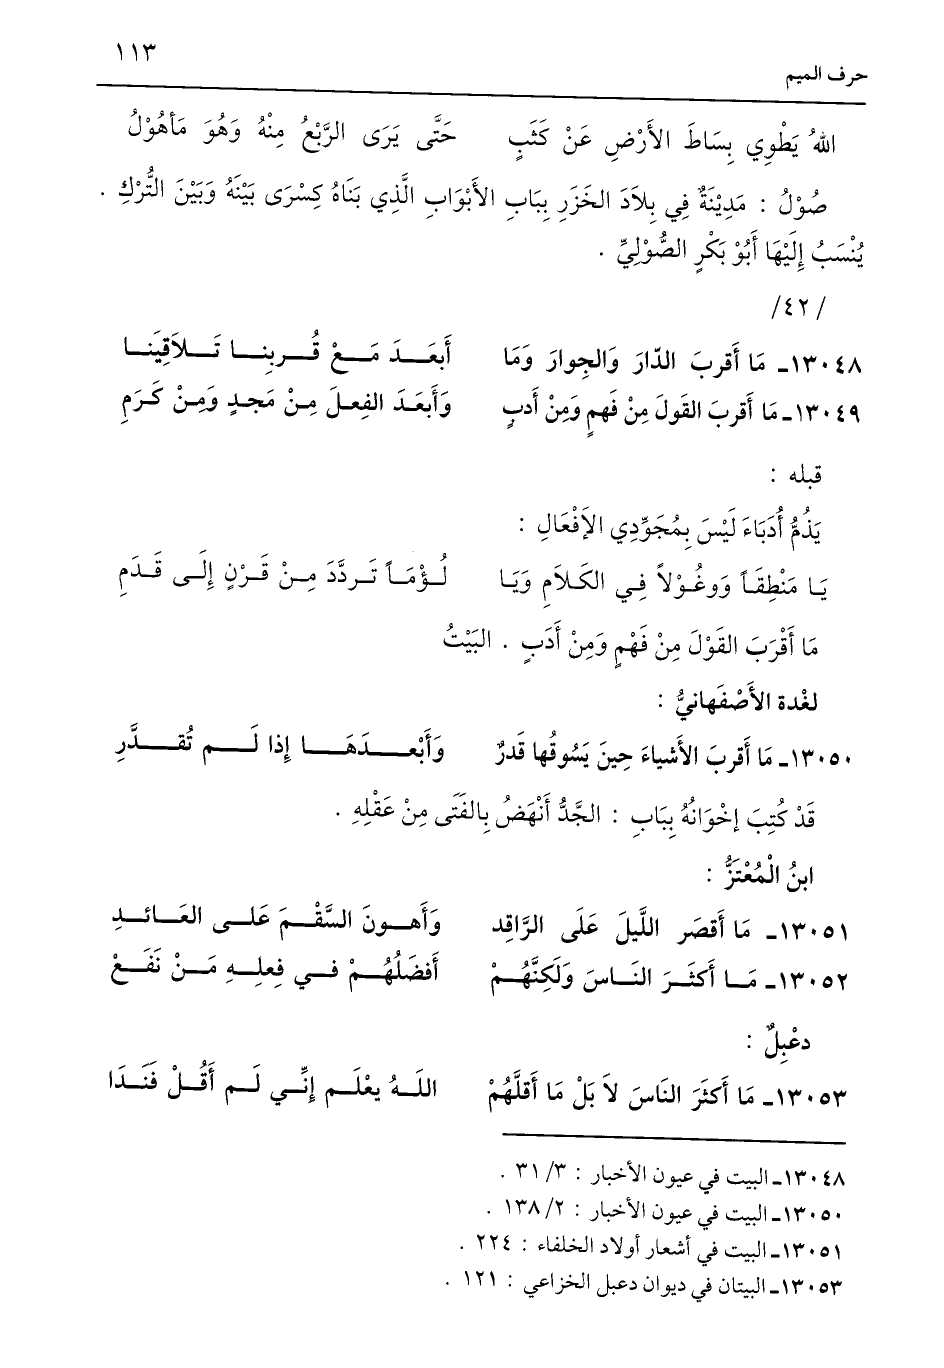 ١١٣
حرف الميم
اللهُ يَطْوِي بِسَاطَ الأَرْضِ عَنْ كَثَبٍ حَتَّى يَرَى الرَّبْعُ مِنْهُ وَهُوَ مَأهُوْلُ
صُوْلُ : مَدِيْنَةٌ فِي بِلاَدَ الخَزَرِ بِبَابِ الأَبْوَابِ الَّذِي بَنَاهُ كِسْرَى بَيْنَهُ وَبَيْنَ التُّرْكِ .
يُنْسَبُ إِلَيْهَا أَبُوْ بَكْرٍ الصُّوْلِيِّ .
/٤٢/
١٣٠٤٨ـ مَا أَقربَ الدّارَ وَالجِوارَ وَمَا أَبعَـــدَ مَـــعْ قُـــربِنـــا تَـــلاَقِيَنـــا
١٣٠٤٩ـ مَا أَقربَ القَولَ مِنْ فَهمٍ وَمِنْ أَدبٍ وَأَبعَـدَ الفِعـلَ مِـنْ مَجـدٍ وَمِـنْ كَـرَمِ
قبله :
يَذُمُّ أُدَبَاءَ لَيْسَ بِمُجَوِّدِي الإَفْعَالِ :
يَـا مَنْطِقَـاً وَوغُـوْلاً فِـي الكَـلاَمِ وَيَـا لُـؤْمَـاً تَـردَّدَ مِـنْ قَـرْنٍ إِلَـى قَـدَمِ
مَا أَقْرَبَ القَوْلَ مِنْ فَهْمٍ وَمِنْ أَدَبٍ . البَيْتُ
لغْدة الأَصْفَهانيُّ :
١٣٠٥٠ـ مَا أَقربَ الأَشياءَ حِينَ يَسُوقُها قَدرٌ وَأَبْعـــدَهَـــا إِذا لَـــم تُقـــدَّرِ
قَدْ كُتِبَ إخْوَانُهُ بِبَابِ : الجَدُّ أَنْهَضُ بِالفَتَى مِنْ عَقْلِهِ .
ابنُ الْمُعْتَزُّ :
١٣٠٥١ـ مَا أَقصَر اللَّيلَ عَلَى الرَّاقِد وَأَهـونَ السَّقْـمَ عَلـى العَـائـدِ
١٣٠٥٢ـ مَـا أَكثَـرَ النَـاسَ وَلَكِنَّهُـمْ أَفضَلُهُـمْ فـي فِعلِـهِ مَـنْ نَفَـعْ
دعْبِلٌ :
١٣٠٥٣ـ مَا أَكثَرَ النَاسَ لاَ بَلْ مَا أَقلَّهُمْ اللَـهُ يعْلَـم إِنِّـي لَـم أَقُـلْ فَنَـدَا
١٣٠٤٨ـ البيت في عيون الأخبار : ٣/ ٣١ .
١٣٠٥٠ـ البيت في عيون الأخبار : ٢/ ١٣٨ .
١٣٠٥١ـ البيت في أشعار أولاد الخلفاء : ٢٢٤ .
١٣٠٥٣ـ البيتان في ديوان دعبل الخزاعي : ١٢١ .